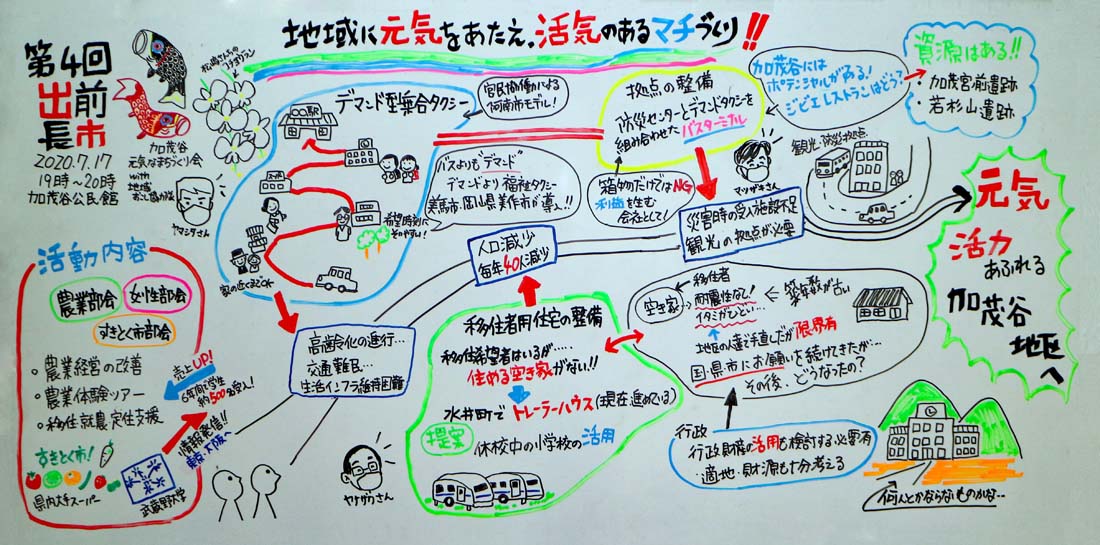 地域に元気をあたえ、活気のあるマチづくり!!
第4回
出前
市長
2020.7.17
19時～20時
加茂谷公民館
加茂谷
元気なまちづくり会
with
地域
おこし協力隊
ヤマシタさん
デマンド型乗合タクシー
駅
官民協働による
阿南市モデル!
希望時刻に
そやすい!
家の近くまでOK
バスよりも"デマンド"
デマンドより福祉タクシー
美馬市・岡山県美作市が導入!!
拠点の整備
防災センターとデマンドタクシーを
組み合わせたバスターミナル
箱物だけではNG
利益を生む
会社として!
加茂谷には
ポテンシャルがある!
ジビエレストランはどう?
マツザキさん
資源はある!!
・加茂宮前遺跡
・若杉山遺跡
観光・防災拠点
災害時の受入施設不足
「観光」の拠点が必要
人口減少
毎年40人減少
高齢化の進行…
交通難民…
生活インフラ維持困難
元気
活力
あふれる
加茂谷
地区へ
活動内容
農業部会
女性部会
すきとく市部会
・農業経営の改善
・農業体験ツアー
・移住就農・定住支援
売上UP!
6年間で学生
約500名受入!
すきとく市!
県内大手スーパー
武蔵野大学
情報発信!!
東京・大阪へ
移住者用住宅の整備
移住希望者はいるが….
住める空き家がない!!
水井町でトレーラーハウス(現在進めている)
提案
休校中の小学校の活用
ヤナザワさん
空き家
移住者
耐震性なし!
イタミがひどい…
築年数が古い
地区の人達で手直ししたが限界有
国・県・市にお願いを続けてきたが…
その後、どうなったの?
行政
行政財産の活用も検討する必要有
・適地・財源も十分考える
何んとかならないものかな…